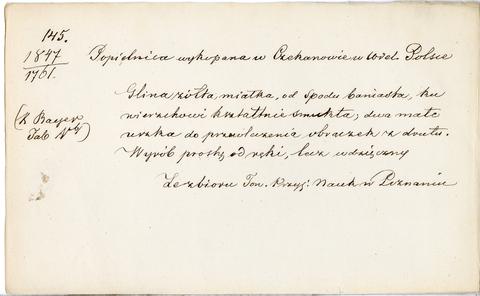 145.
1847
1761.
Popielnica wykopana w Czekanowie w Wiel. Polsce
(K Bayer
Tab
Glina żółta, miałka, od spodu baniasta, ku
wierzchowi kształtnie smukła; dwa małe
uszka do przewleczenia obrączek z drutu.
Wyrób prosty od ręki, lecz wdzięczny
Ze zbioru Tow. Przyj. Nauk w Poznaniu